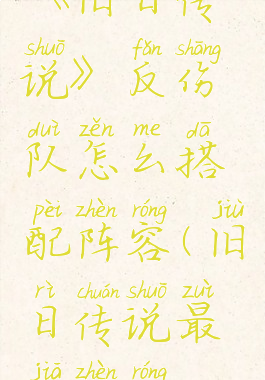 《旧日传
shuō fǎn shāng
说》反伤
duì zěn me dā
队怎么搭
pèi zhèn róng jiù
配阵容(旧
rì chuán shuō zuì
日传说最
jiā zhèn róng